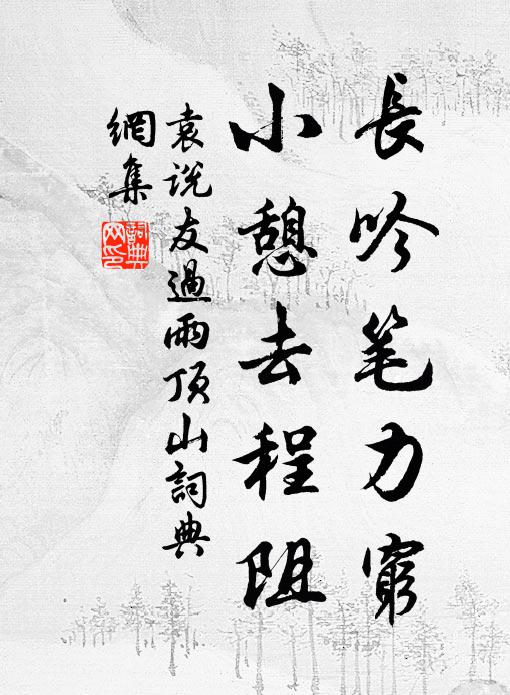 長吟笔力窮
小憩去程阻
袁说友過雨頂山詞典
網集
詞典
网印